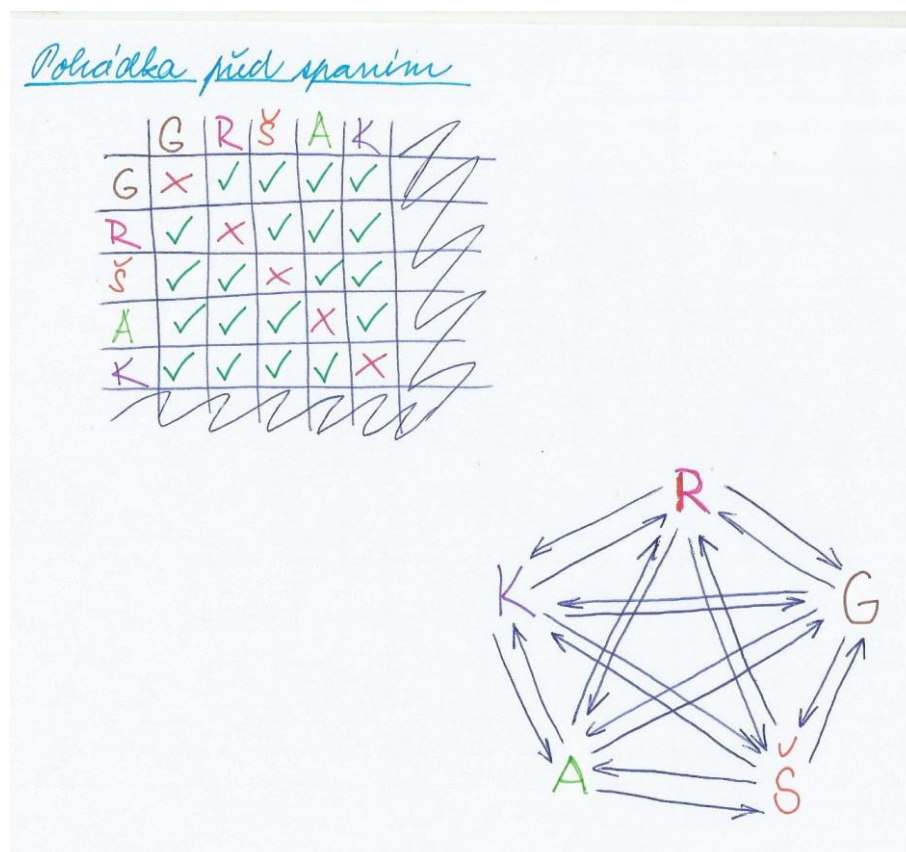 Pohádka před spaním
G R Š A K
G × ✓ ✓ ✓ ✓
R ✓ × ✓ ✓ ✓
Š ✓ ✓ × ✓ ✓
A ✓ ✓ ✓ × ✓
K ✓ ✓ ✓ ✓ ×
R
K G
A Š